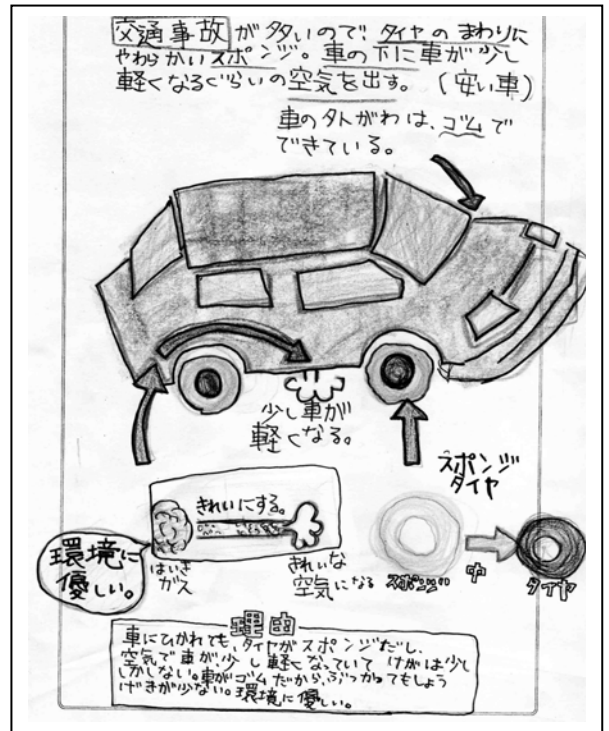 交通事故が多いので、タイヤのまわりに
やわらかいスポンジ。車の下に車が少し
軽くなるぐらいの空気を出す。(安い車)
車の外がわは、ゴムで
できている。
少し車が
軽くなる。
スポンジ
タイヤ
きれいにする。
環境に
優しい。
はいき
ガス
きれいな
空気になる
スポンジ
中
タイヤ
理由
車にひかれても、タイヤがスポンジだし、
空気で車が少し軽くなっていてけがは少し
しかしない。車がゴムだから、ぶつかってもしょう
げきが少ない。環境に優しい。